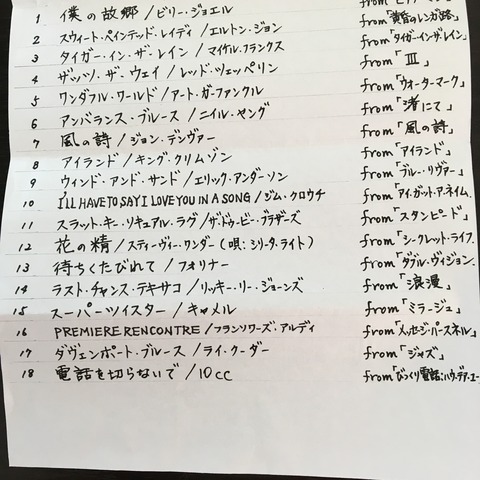 1 僕の故郷/ビリー・ジョエル from「ピアノ・マン
2 スウィート・ペインテッド・レイディ/エルトン・ジョン from「黄昏のレンガ路」
3 タイガー・イン・ザ・レイン/マイケル・フランクス from「タイガー・イン・ザ・レイン」
4 ザッツ・ザ・ウェイ/レッド・ツェッペリン from「Ⅲ」
5 ワンダフル・ワールド/アート・ガーファンクル from「ウォーターマーク」
6 アンバランス・ブルース/ニイル・ヤング from「渚にて」
7 風の詩/ジョン・デンヴァー from「風の詩」
8 アイランド/キング・クリムゾン from「アイランド」
9 ウィンド・アンド・サンド/エリック・アンダーソン from「ブルー・リヴァー」
10 I'LL HAVE TO SAY I LOVE YOU IN A SONG/ジム・クロウチ from「アイ・ガット・ア・ネイム.
11 スラット・キー・リキュアル・ラグ/ザ・ドゥービー・ブラザーズ from「スタンピード」
12 花の精/スティーヴィー・ワンダー(唄:シリータ・ライト) from「シークレット・ライフ.
13 待ちくたびれて/フォリナー from「ダブル・ヴィジョン.
14 ラスト・チャンス・テキサコ/リッキー・リー・ジョーンズ from「浪漫」
15 スーパー・ツイスター/キャメル from「ミラージュ」
16 PREMIERE RENCONTRE/フランソワーズ・アルディ from「メッセージ・パースネル」
17 ダヴェンポート・ブルース/ライ・クーダー from「ジャズ」
18 電話を切らないで/10cc from「びっくり電話:ハウ・デア・ユー